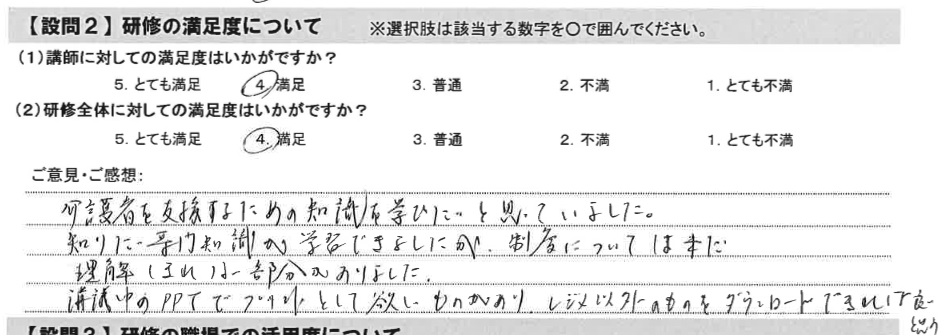 【設問2】研修の満足度について ※選択肢は該当する数字を○で囲んでください。
(1)講師に対しての満足度はいかがですか?
5. とても満足 4. 満足 3. 普通 2. 不満 1. とても不満
(2)研修全体に対しての満足度はいかがですか?
5. とても満足 4. 満足 3. 普通 2. 不満 1. とても不満
ご意見・ご感想:
介護者を支援するための知識を学びたいと思っていました。
知りたい専門知識が学習できましたが、制度については未だ
理解しきれない部分がありました。
講議中のPPTでプリントとして欲しいものがあり、レジメ以外のものもダウンロードできれば良い
【設問3】研修の職場での活用度について